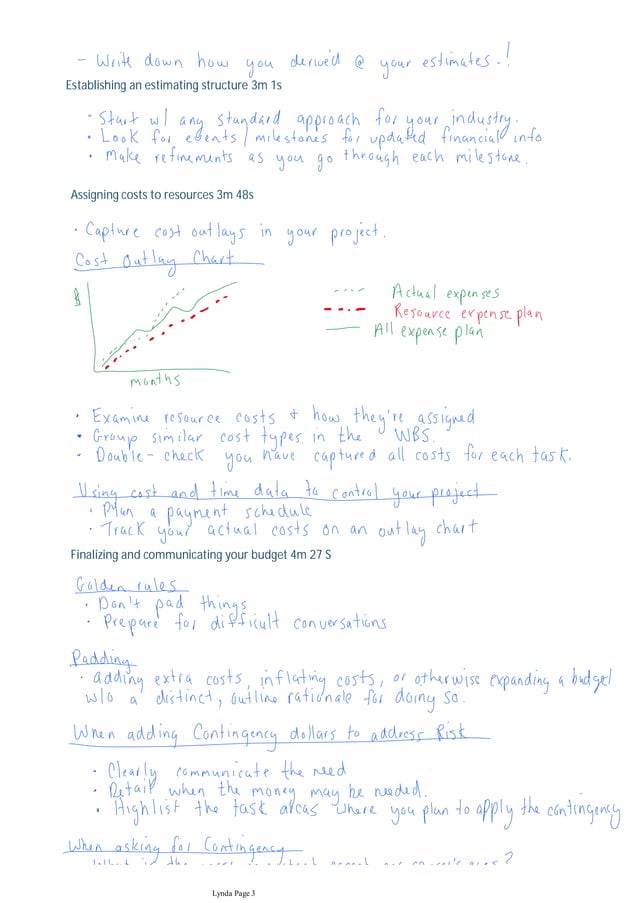 - Write down how you derived @ your estimates.!
Establishing an estimating structure 3m 1s
• Start w/ any standard approach for your industry.
• Look for events / milestones for updated financial info
• Make refinements as you go through each milestone.
Assigning costs to resources 3m 48s
• Capture cost outlays in your project.
Cost Outlay Chart
$
Actual expenses
Resource expense plan
All expense plan
months
• Examine resource costs & how they're assigned
• Group similar cost types in the WBS.
• Double-check you have captured all costs for each task.
Using cost and time data to control your project
• Plan a payment schedule
• Track your actual costs on an outlay chart
Finalizing and communicating your budget 4m 27 S
Golden rules
• Don't pad things
• Prepare for difficult conversations
Padding
• adding extra costs, inflating costs, or otherwise expanding a budget
w/o a distinct, outline rationale for doing so.
When adding Contingency dollars to address Risk
• Clearly communicate the need
• Detail when the money may be needed.
• Highlist the task areas where you plan to apply the contingency
When asking for Contingency
Lynda Page 3